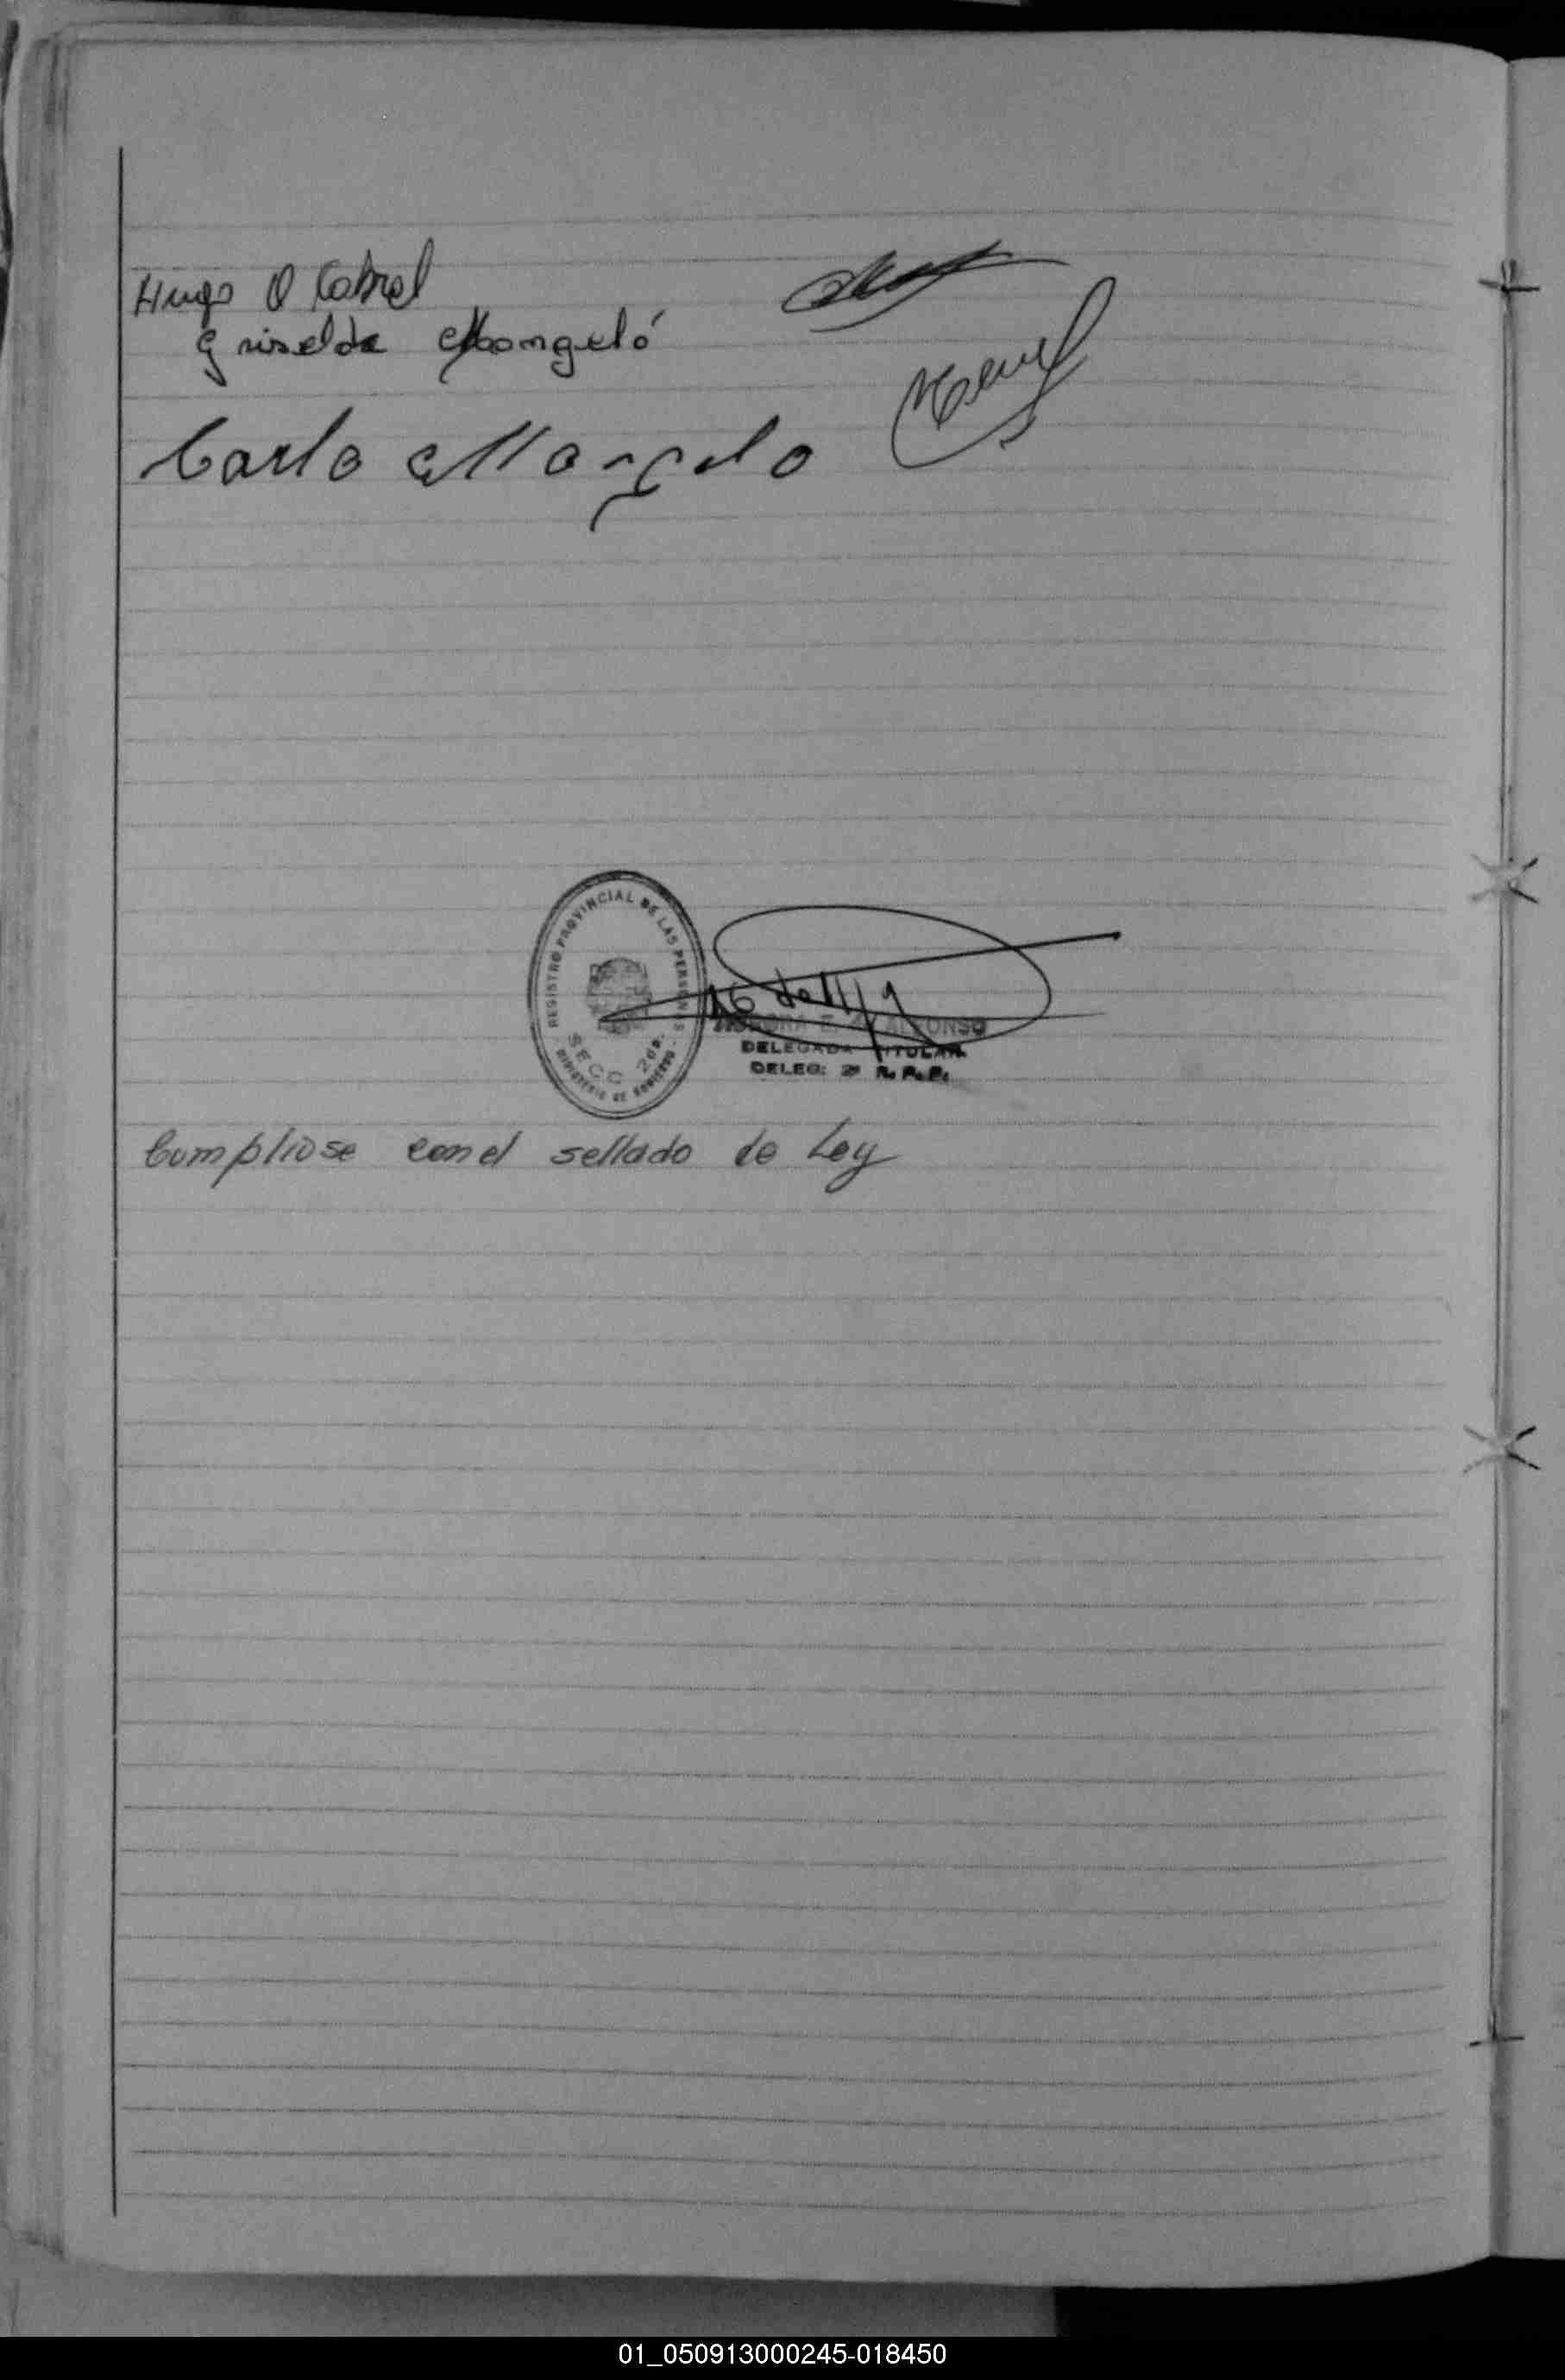 Hugo O Cabrel
Griselda Mongeló
Carlo Mongelo
REGISTRO PROVINCIAL DE LAS PERSONAS
SECC 2da.
MINISTERIO DE GOBIERNO
ALFONSO
DELEGADA TITULAR
DELEG: 2ª R. P. P.
Cumpliose con el sellado de Ley
01_050913000245-018450